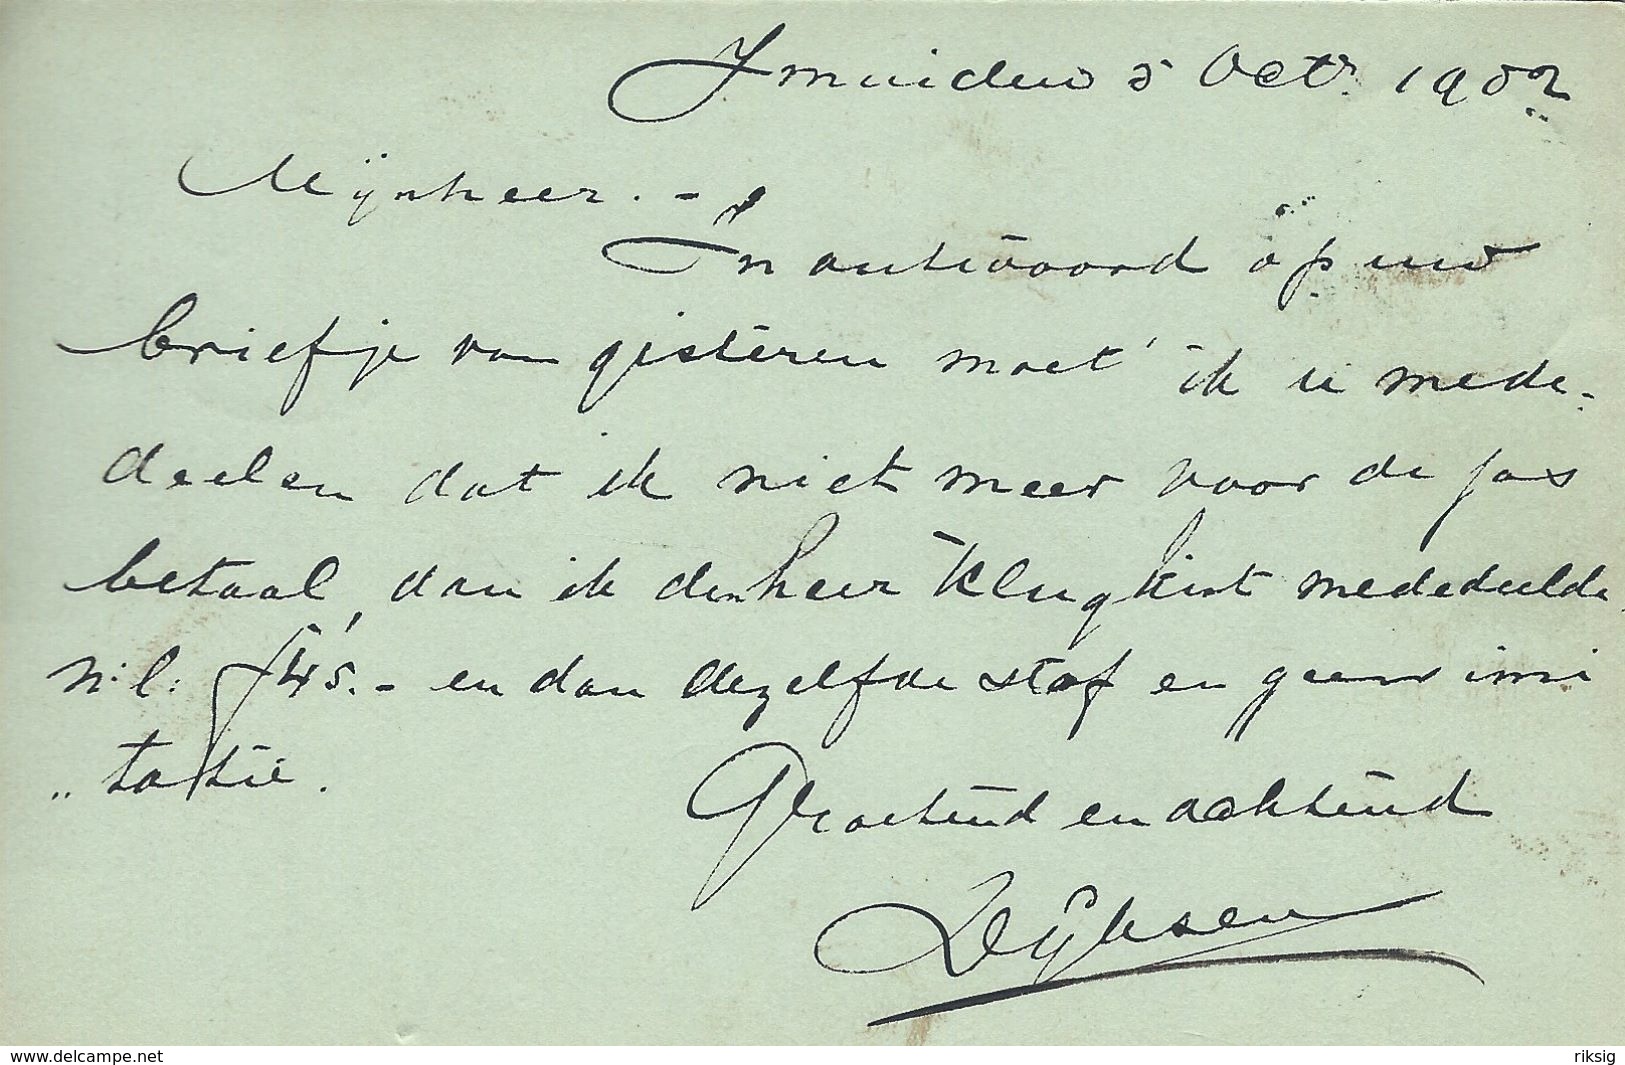 Ymuiden 5 Octr. 1902
Mijnheer. -
In antwoord op uw
briefje van gisteren moet ik u mede-
deelen dat ik niet meer voor de jas
betaal, dan ik den heer Klugkist mededeelde
n.l: f 45.- en dan dezelfde stof en geen imi
„ tatie.
Groetend en achtend
Dijksen
www.delcampe.net
riksig